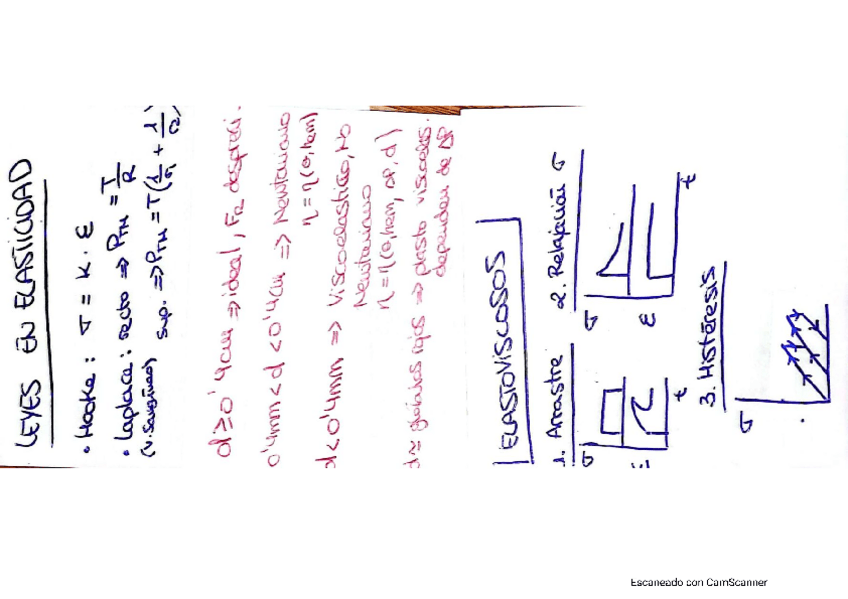 LEYES EN ELASTICIDAD
• Hooke: σ = K · ε
• Laplace: recto ⇒ P_TM = T/R
(v. sanguíneo) sup. ⇒ P_TM = T(1/r1 + 1/r2)
d ≥ 0'4cm ⇒ ideal, FR despreci.
0'4mm < d < 0'4cm ⇒ Newtoniano
η = η(θ, hem)
d < 0'4mm ⇒ Viscoelástico, No
Newtoniano
η = η(θ, hem, ΔP, d)
d ≈ glóbulos rojos ⇒ plasto viscosos.
dependen de ΔP
ELASTOVISCOSOS
1. Arrastre
σ
ε
t
2. Relajación σ
σ
ε
t
3. Histéresis
σ
Escaneado con CamScanner